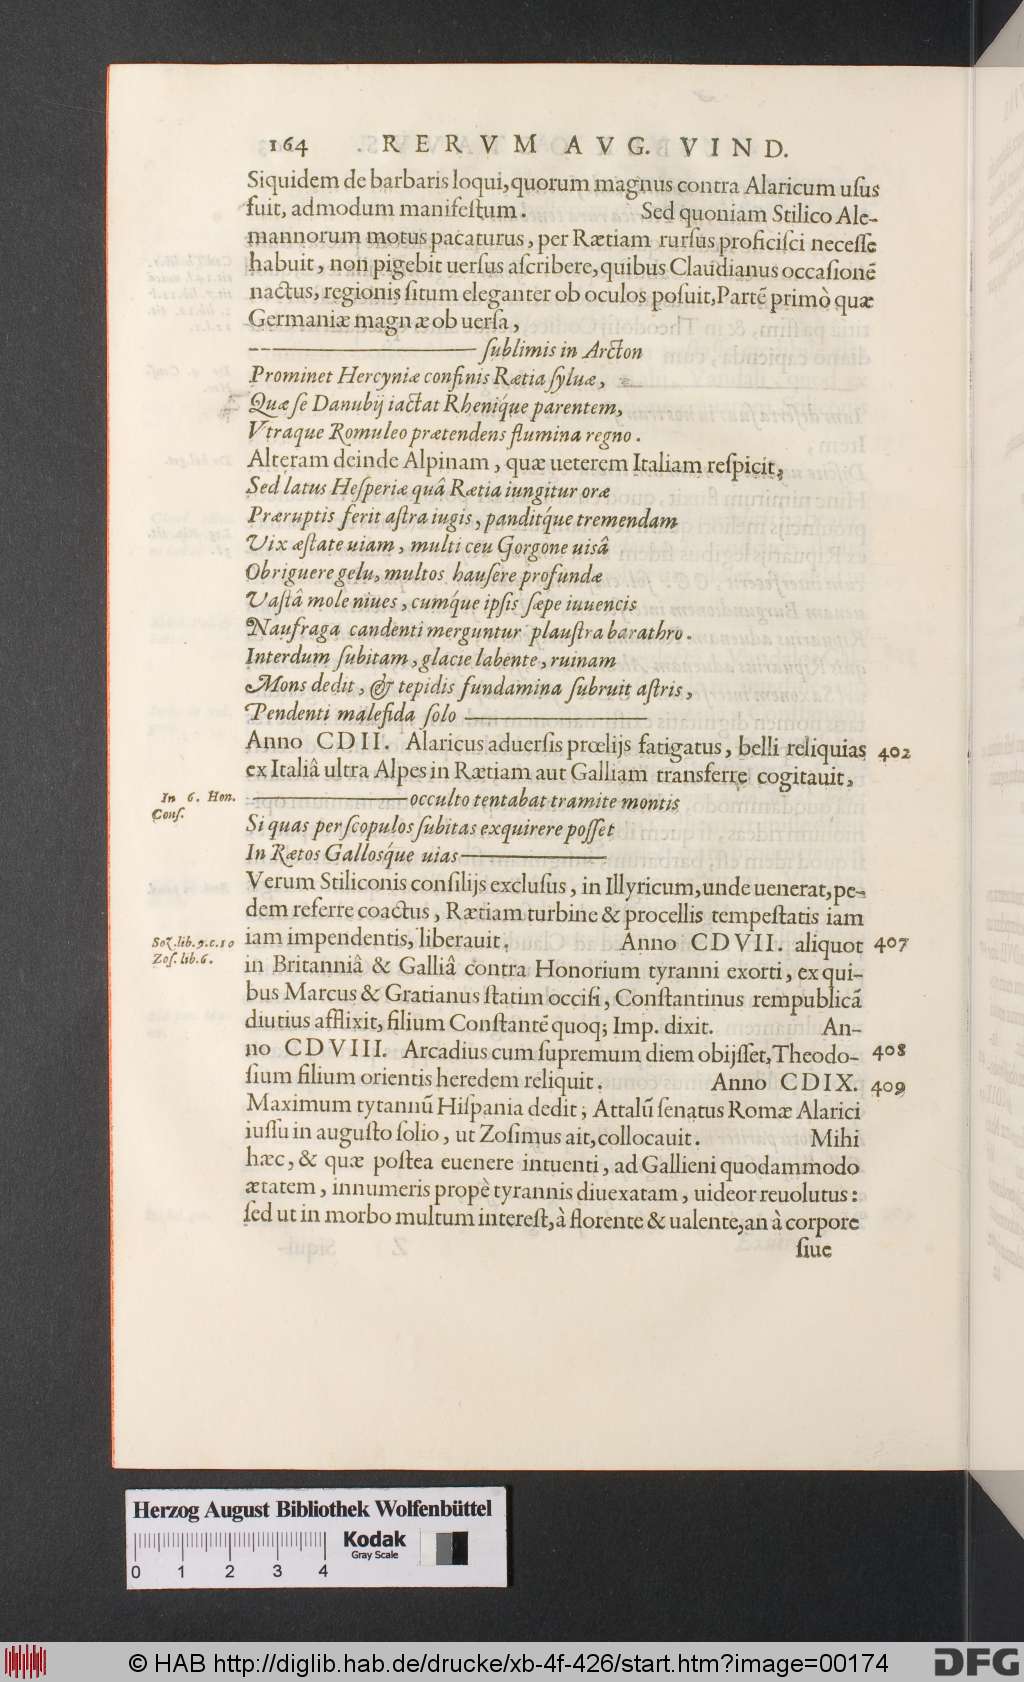 164 RERVM AVG. VIND.
Siquidem de barbaris loqui, quorum magnus contra Alaricum uſus
fuit, admodum manifeſtum. Sed quoniam Stilico Ale-
mannorum motus pacaturus, per Rætiam rurſus proficiſci neceſſe
habuit, non pigebit uerſus aſcribere, quibus Claudianus occaſionẽ
nactus, regionis ſitum eleganter ob oculos poſuit, Partẽ primò quæ
Germaniæ magnæ ob uerſa,
ſublimis in Arcton
Prominet Hercyniæ confinis Rætia ſyluæ,
Quæ ſe Danubij iactat Rheniq́ue parentem,
Vtraque Romuleo prætendens flumina regno.
Alteram deinde Alpinam, quæ ueterem Italiam reſpicit,
Sed latus Heſperiæ quâ Rætia iungitur oræ
Præruptis ferit aſtra iugis, panditq́ue tremendam
Vix æſtate uiam, multi ceu Gorgone uisâ
Obriguere gelu, multos hauſere profundæ
Vaſtâ mole niues, cumq́ue ipſis ſæpe iuuencis
Naufraga candenti merguntur plauſtra barathro.
Interdum ſubitam, glacie labente, ruinam
Mons dedit, & tepidis fundamina ſubruit aſtris,
Pendenti malefida ſolo
Anno CDII. Alaricus aduerſis prœlijs fatigatus, belli reliquias 402
ex Italiâ ultra Alpes in Rætiam aut Galliam transferre cogitauit,
In 6. Hon. occulto tentabat tramite montis
Conſ.
Si quas per ſcopulos ſubitas exquirere poſſet
In Rætos Galloſq́ue uias
Verum Stiliconis conſilijs excluſus, in Illyricum, unde uenerat, pe-
dem referre coactus, Rætiam turbine & procellis tempeſtatis iam
Soz. lib. 9. c. 10 iam impendentis, liberauit. Anno CDVII. aliquot 407
Zoſ. lib. 6.
in Britanniâ & Galliâ contra Honorium tyranni exorti, ex qui-
bus Marcus & Gratianus ſtatim occiſi, Conſtantinus rempublicã
diutius afflixit, filium Conſtantẽ quoq; Imp. dixit. An-
no CDVIII. Arcadius cum ſupremum diem obijſſet, Theodo- 408
ſium filium orientis heredem reliquit. Anno CDIX. 409
Maximum tytannũ Hiſpania dedit; Attalũ ſenatus Romæ Alarici
iuſſu in auguſto ſolio, ut Zoſimus ait, collocauit. Mihi
hæc, & quæ poſtea euenere intuenti, ad Gallieni quodammodo
ætatem, innumeris propè tyrannis diuexatam, uideor reuolutus:
ſed ut in morbo multum intereſt, à florente & ualente, an à corpore
ſiue
Herzog August Bibliothek Wolfenbüttel
Kodak
Gray Scale
0 1 2 3 4
© HAB http://diglib.hab.de/drucke/xb-4f-426/start.htm?image=00174
DFG